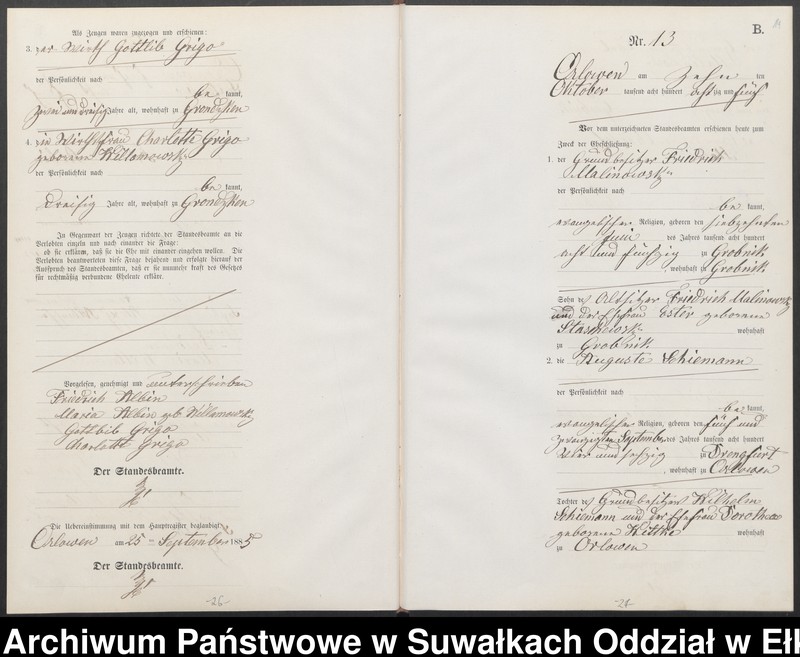 Als Zeugen waren zugezogen und erschienen:
3. der Wirth Gottlieb Grigo
der Persönlichkeit nach
be kannt,
zwei und dreißig Jahre alt, wohnhaft zu Grondzken
4. die Wirthsfrau Charlotte Grigo
geborene Willamowski
der Persönlichkeit nach
be kannt,
dreißig Jahre alt, wohnhaft zu Grondzken
In Gegenwart der Zeugen richtete der Standesbeamte an die
Verlobten einzeln und nach einander die Frage:
ob sie erklären, daß sie die Ehe mit einander eingehen wollen. Die
Verlobten beantworteten diese Frage bejahend und erfolgte hierauf der
Ausspruch des Standesbeamten, daß er sie nunmehr kraft des Gesetzes
für rechtmäßig verbundene Eheleute erkläre.
Vorgelesen, genehmigt und unterschrieben
Friedrich Albin
Maria Albin geb Willamowski
Gottlieb Grigo
Charlotte Grigo
Der Standesbeamte.
Die Uebereinstimmung mit dem Hauptregister beglaubigt
Orlowen am 25 ten September 1885
Der Standesbeamte.
-26-
B.
Nr. 13
Orlowen am Zehn ten
Oktober tausend acht hundert achtzig und fünf
Vor dem unterzeichneten Standesbeamten erschienen heute zum
Zweck der Eheschließung:
1. der Grundbesitzer Friedrich
Malinowski
der Persönlichkeit nach
be kannt,
evangelischer Religion, geboren den siebzehnten
Juni des Jahres tausend acht hundert
acht und fünfzig zu Grobnik
, wohnhaft zu Grobnik
Sohn des Altsitzer Friedrich Malinowski
und der Ehefrau Ester geborene
wohnhaft
zu Grobnik
2. die Auguste Schiemann
der Persönlichkeit nach
be kannt,
evangelischer Religion, geboren den fünf und
zwanzigsten September des Jahres tausend acht hundert
vier und sechzig zu Drengfurt
, wohnhaft zu Orlowen
Tochter des Grundbesitzer Wilhelm
Schiemann und der Ehefrau Dorothea
geborene Wittke wohnhaft
zu Orlowen
Archiwum Państwowe w Suwałkach Oddział w Ełk